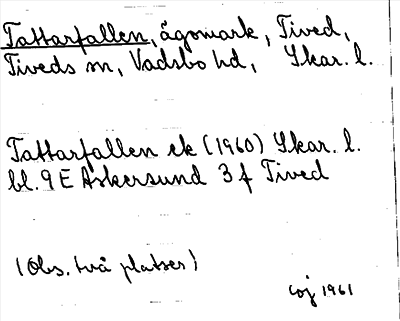 Tattarfallen, ägomark, Tived,
Tiveds sn, Vadsbo hd, Skar. l.
Tattarfallen ek (1960) Skar. l.
bl. 9 E Askersund 3 f Tived
(Obs. två platser)
1961